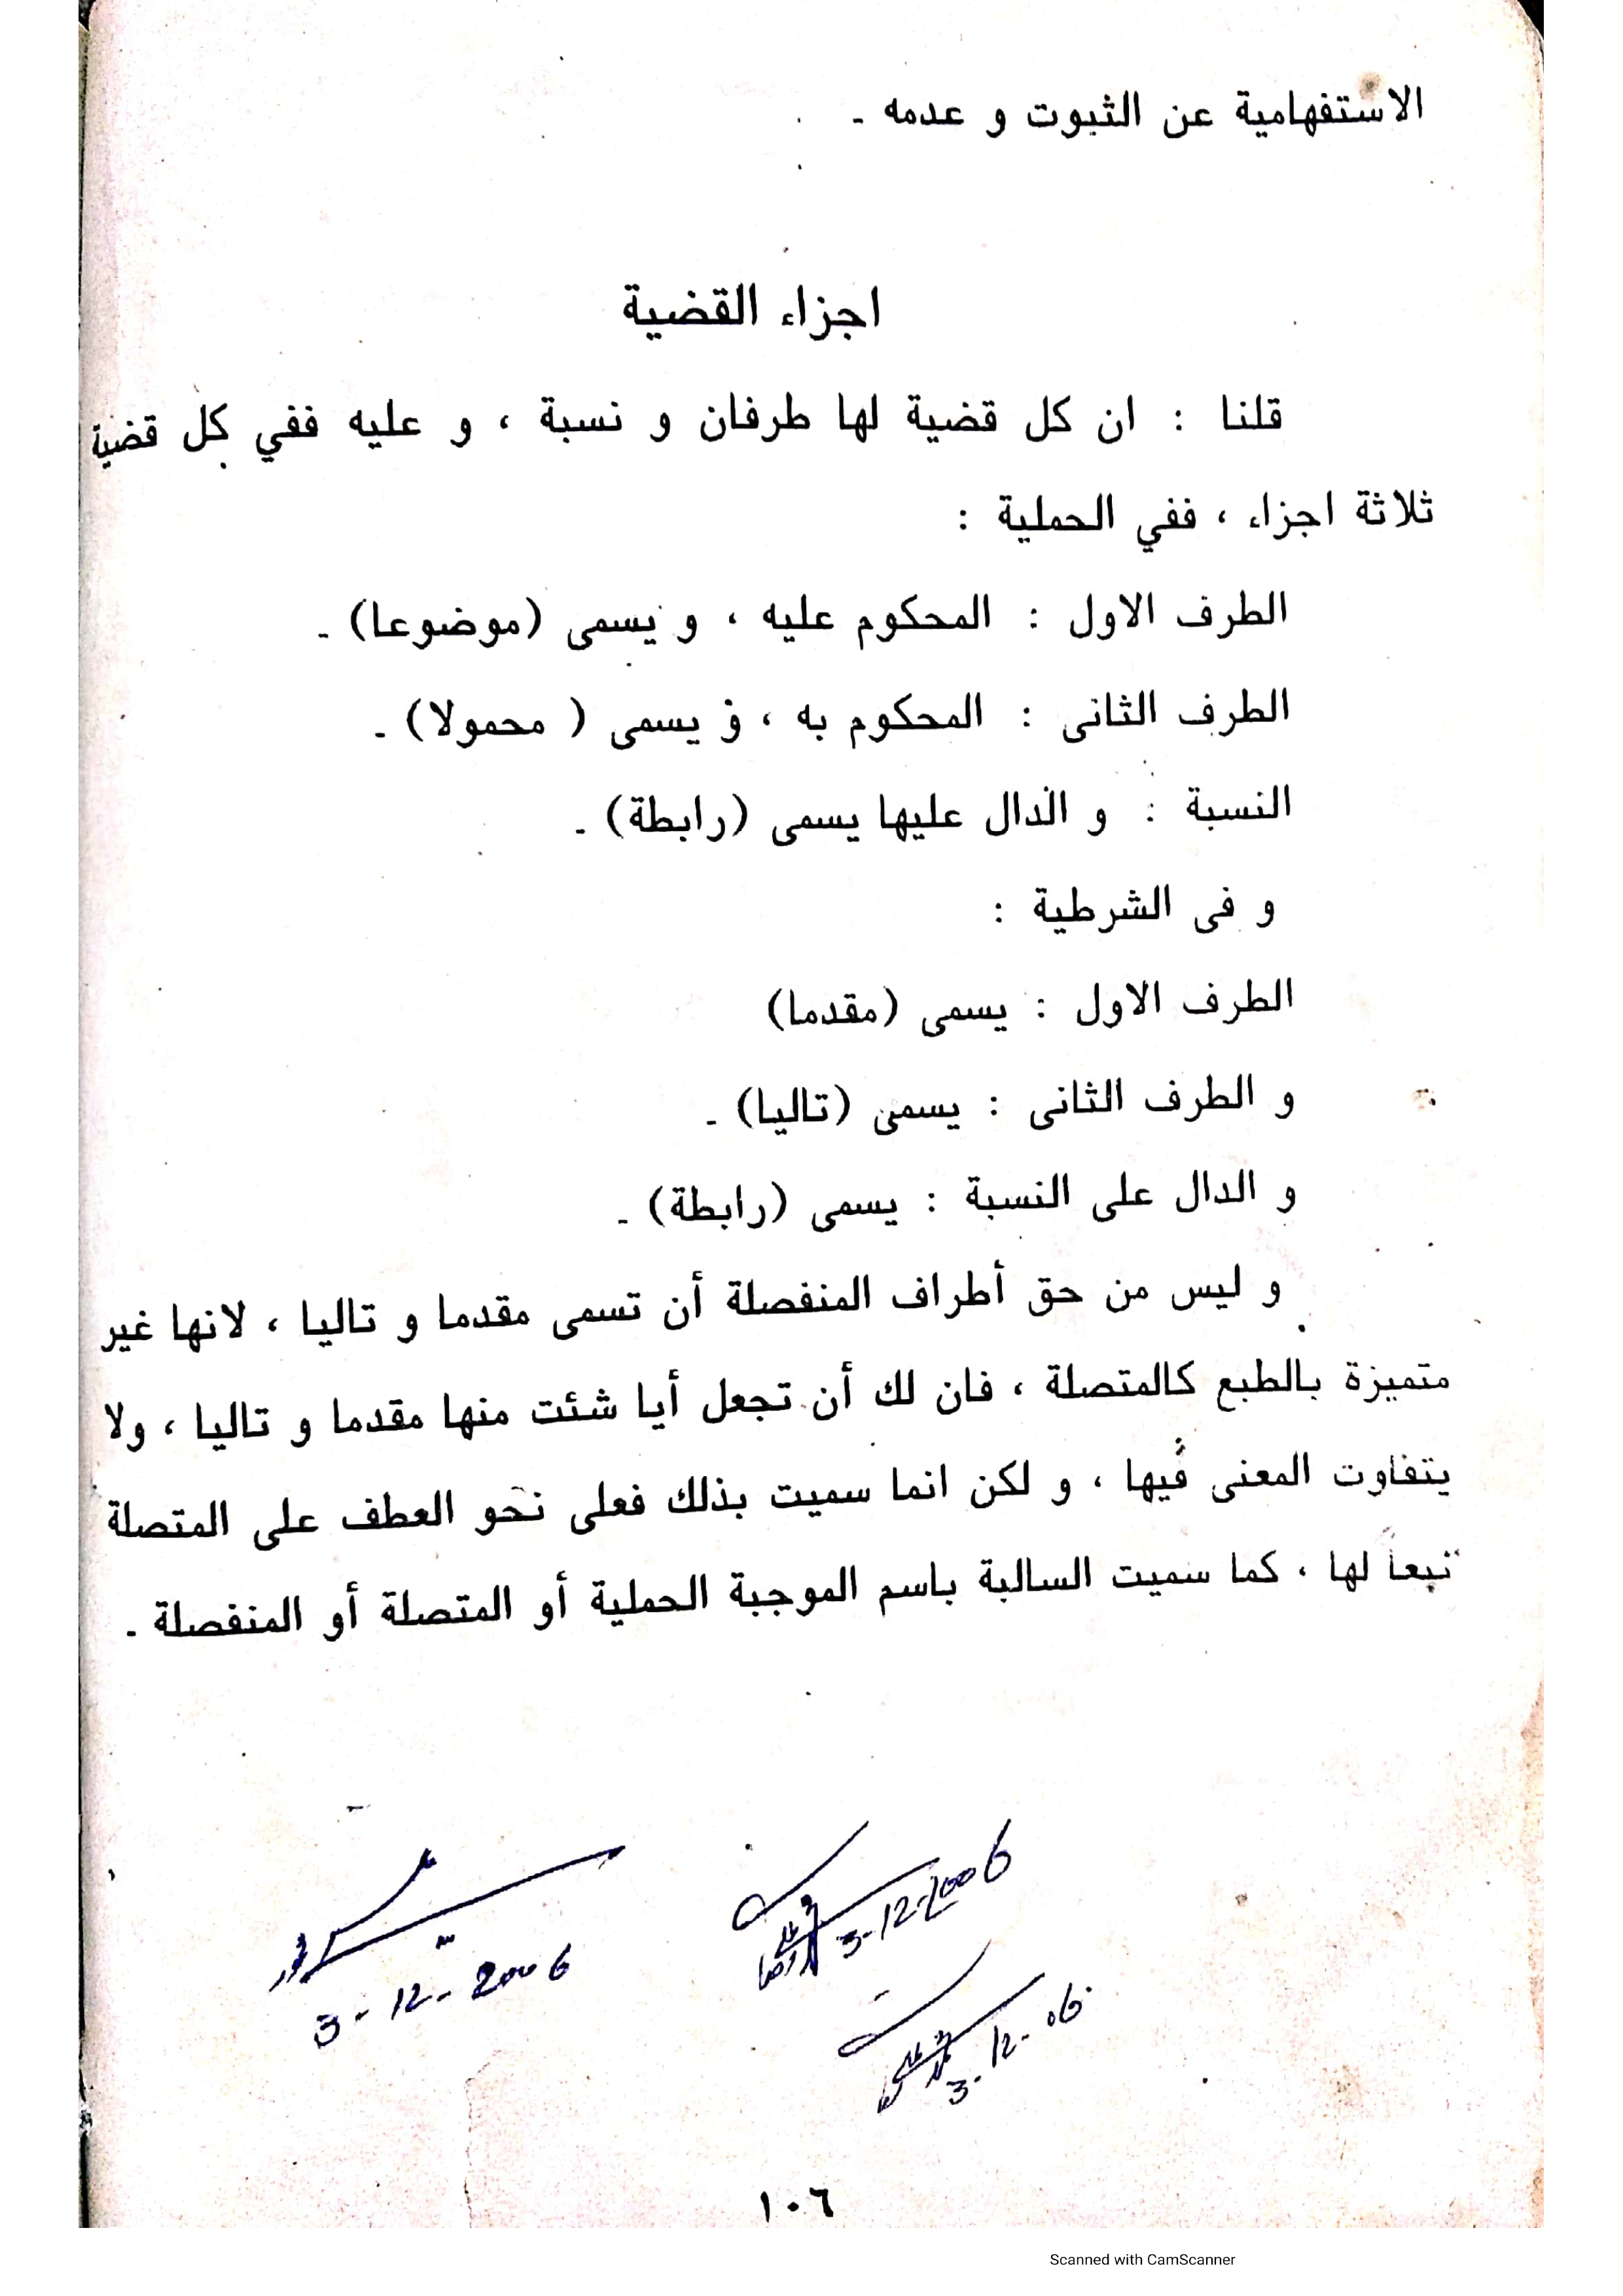 الاستفهامية عن الثبوت و عدمه ـ
اجزاء القضية
قلنا : ان كل قضية لها طرفان و نسبة ، و عليه ففي كل قضية
ثلاثة اجزاء ، ففي الحملية :
الطرف الاول : المحكوم عليه ، و يسمى (موضوعا) ـ
الطرف الثانى : المحكوم به ، و يسمى ( محمولا) ـ
النسبة : و الدال عليها يسمى (رابطة) ـ
و فى الشرطية :
الطرف الاول : يسمى (مقدما)
و الطرف الثانى : يسمى (تاليا) ـ
و الدال على النسبة : يسمى (رابطة) ـ
و ليس من حق أطراف المنفصلة أن تسمى مقدما و تاليا ، لانها غير
متميزة بالطبع كالمتصلة ، فان لك أن تجعل أيا شئت منها مقدما و تاليا ، ولا
يتفاوت المعنى فيها ، و لكن انما سميت بذلك فعلى نحو العطف على المتصلة
تبعا لها ، كما سميت السالبة باسم الموجبة الحملية أو المتصلة أو المنفصلة ـ
3-12-2006
3-12-2006
3-12-06
١٠٦
Scanned with CamScanner